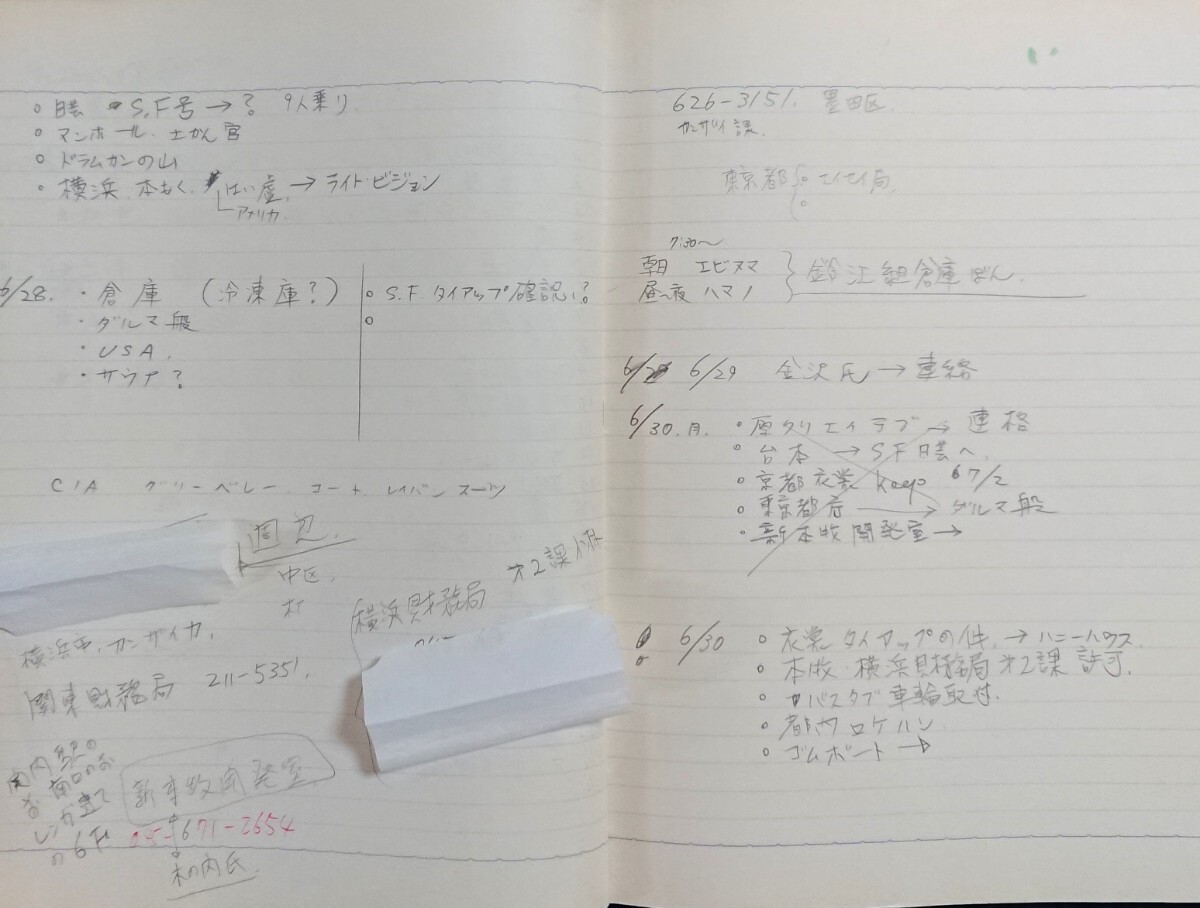 ○ 日芸 S.F号 → ? 9人乗り
○ マンホール. 土かん官
○ ドラムカンの山
○ 横浜. 本もく. はい虚. → ライト・ビジョン
アメリカ
6/28. ・倉庫 (冷凍庫?)
・ダルマ船
・USA.
・サウナ?
○ S.F. タイアップ確認い?
○
CIA グリーンベレー. コート. レイバン スーツ
週辺.
中区.
横浜市. カンザイカ.
横浜財務局 才2課
関東財務局 211-5351.
関内駅の
南口の
レンガ建て
の6F
新本牧開発室
045-671-2654
木の内氏
626-3151. 墨田区.
カンザイ課.
東京都 ○ エイセイ局.
○
7:30〜
朝 エビヌマ
昼〜夜 ハマノ
鈴江組倉庫
6/29 金沢氏 → 連絡
6/30.月. ・原クリエイティブ → 連絡
○ 台本 → S.F日芸へ.
・京都衣裳 keep 7/2
・東京都庁 → ダルマ船
・新本牧開発室 →
6/30 ○ 衣裳タイアップの件. → ハニーハウス.
○ 本牧・横浜財務局 才2課 許可.
○ バスタブ車輪取付.
○ 都内ロケハン
○ ゴムボート →